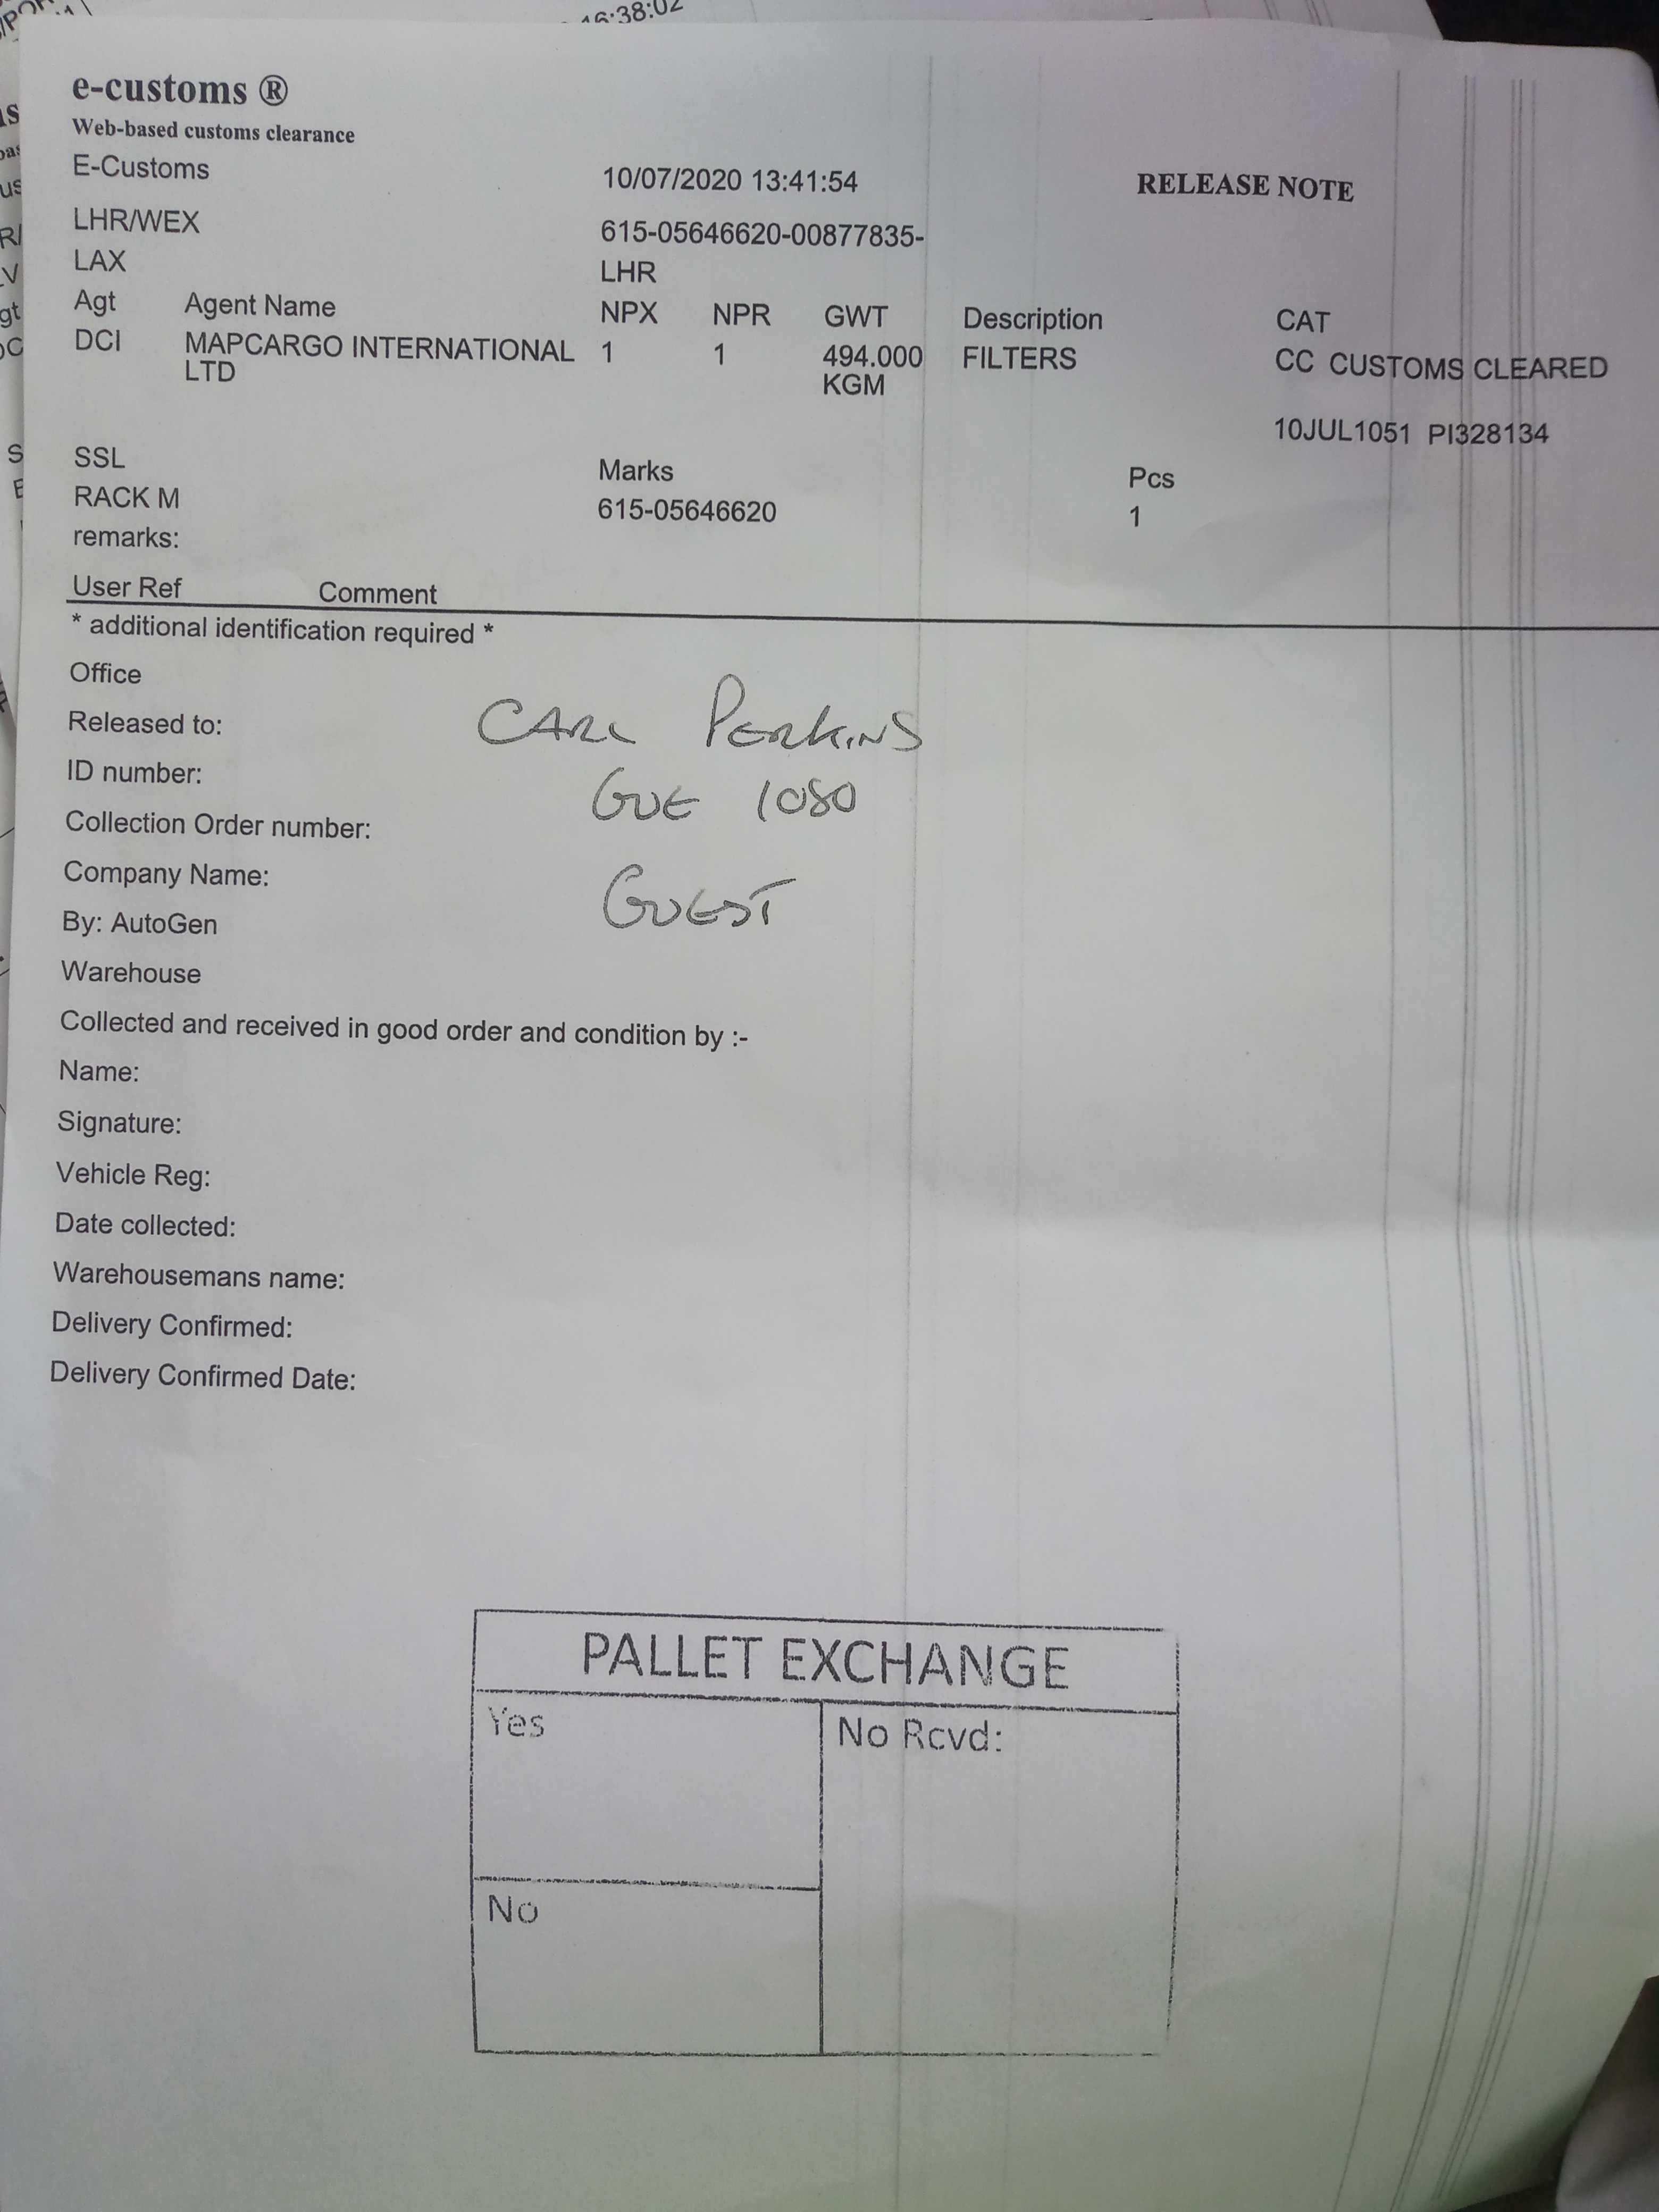 16:38:02
e-customs ®
Web-based customs clearance
E-Customs 10/07/2020 13:41:54 RELEASE NOTE
LHR/WEX 615-05646620-00877835-
LAX LHR
Agt Agent Name NPX NPR GWT Description CAT
DCI MAPCARGO INTERNATIONAL 1 1 494.000 FILTERS CC CUSTOMS CLEARED
LTD KGM
10JUL1051 PI328134
SSL Marks Pcs
RACK M 615-05646620 1
remarks:
User Ref Comment
* additional identification required *
Office
Released to: CARL PERKINS
ID number: GUE 1080
Collection Order number:
Company Name: GUEST
By: AutoGen
Warehouse
Collected and received in good order and condition by :-
Name:
Signature:
Vehicle Reg:
Date collected:
Warehousemans name:
Delivery Confirmed:
Delivery Confirmed Date:
PALLET EXCHANGE
Yes No Rcvd:
No